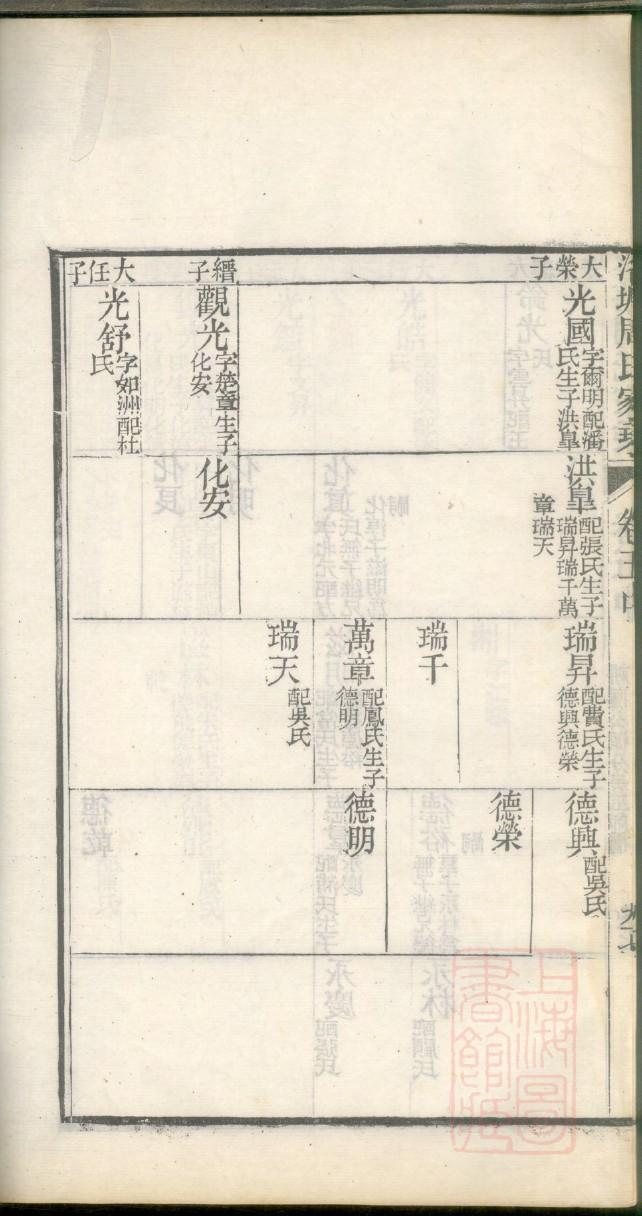 周氏家
卷
大榮子
光國 字爾明配潘
氏生子洪皐
洪皐 配張氏生子
瑞昇瑞千萬
章瑞天
瑞昇 配費氏生子
德興德榮
德興 配吳氏
德榮
瑞千
萬章 配鳳氏生子
德明
德明
瑞天 配吳氏
縉子
觀光 字楚章生子
化安
化安
大任子
光舒 字如洲配杜
氏
上海圖
書館藏